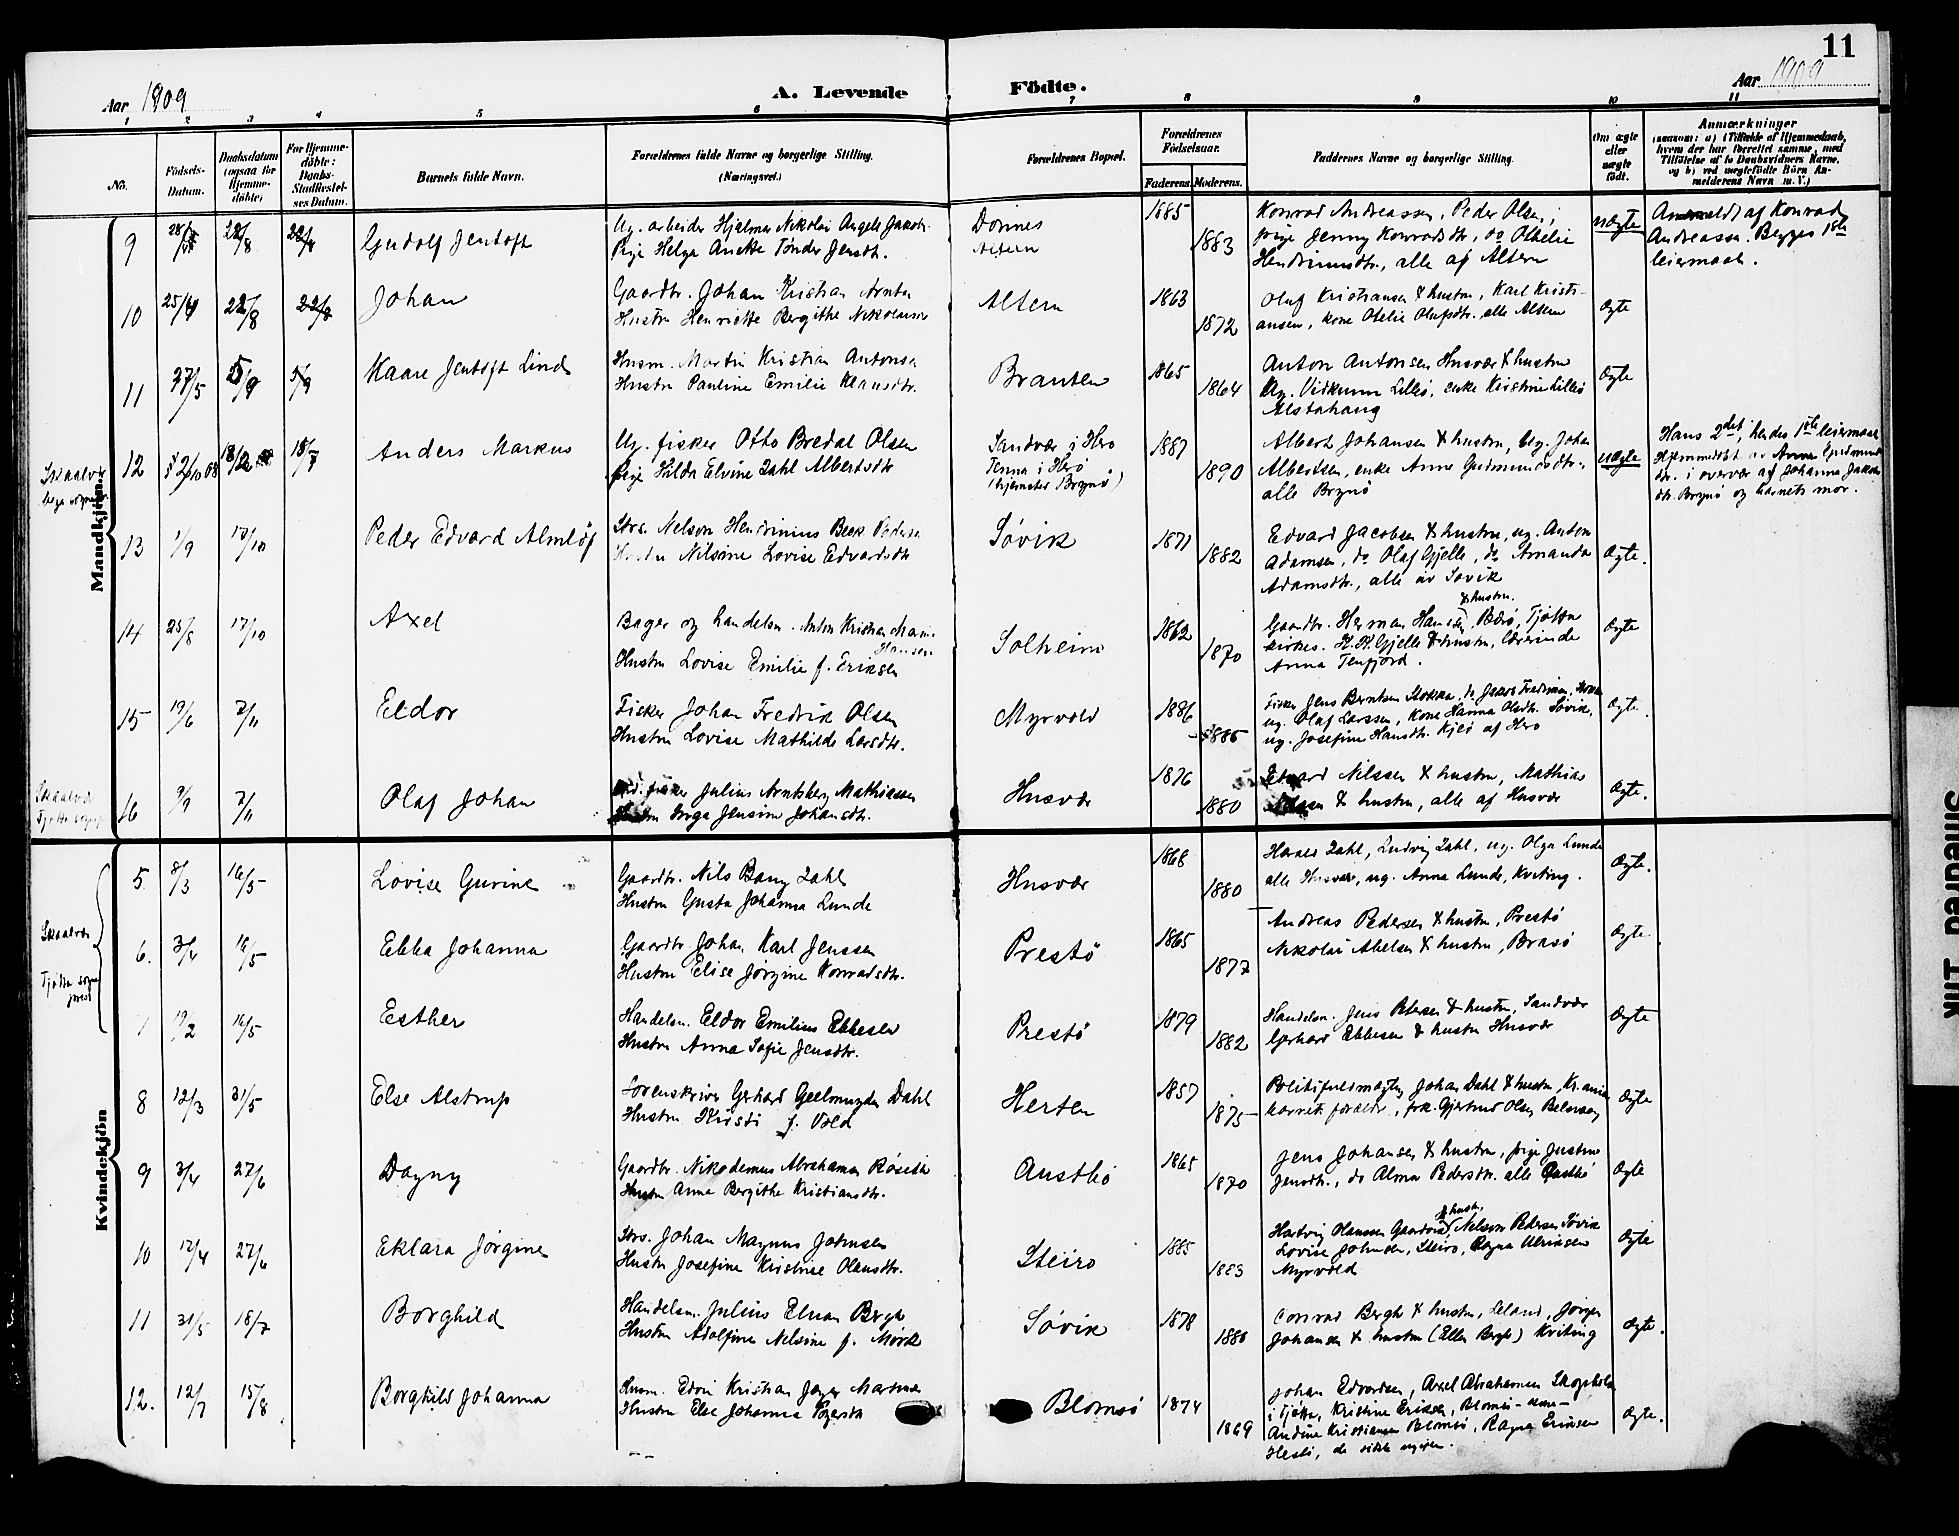 11
Aar 1909
A. Levende
Födte.
Aar 1909
1 2 3 4 5 6 7 8 9 10 11
No.
Födsels-
Datum.
Daabsdatum
(ogsaa for
Hjemme-
döbte)
For Hjemme-
döbte:
Daabs-
Stadfæstel-
ses Datum.
Barnets fulde Navn.
Forældrenes fulde Navne og borgerlige Stilling.
(Næringsvei.)
Forældrenes Bopæl.
Forældrenes
Födselsaar.
Faderens. Moderens.
Faddernes Navne og borgerlige Stilling.
Om ægte
eller
uægte
født.
Anmærkninger
(saasom: a) i Tilfælde af Hjemmedaab,
hvem der har forrettet samme, med
Tilföielse af to Daabsvidners Navne,
og b) ved uægtefödte Börn An-
melderens Navn m. V.)
Mandkjön.
9 22/8 Gudolf Jentoft
Ug. arbeider Hjalmar Nikolai Angell Jakobs.
Pige Helga Anette Tønder Jensdtr.
Dønnes
Altern
1885
1883
Konrad Andreassen, Peder Olsen,
pige Jenny Konradsdtr., do Othelie
Hendriminsdtr., alle af Altern
uægte
Anmeldt af Konrad
Andreassen. Begges 1ste
leiermaal.
10 25/4 22/8 22/8 Johan
Gaardbr. Johan Kristian Arntsen
Hustru Henriette Bergithe Nikolaisen
Altern
1863
1872
Oluf Kristiansen & hustru, Karl Kristi-
ansen, kone Otelie Olufsdtr. alle Altern
Ægte
11 27/5 5/9 5/9 Kaare Jentoft Lind
Husm. Martin Kristian Antonsen
Hustru Pauline Emilie Klausdtr.
Branten
1865
1864
Anton Antonsen Husvær & hustru
Ug. Vidkunn Lillesø, enke Kristine Lillesø
Alstahaug
Ægte
Skaalvær
12 18/7 Anders Markus
Ug. fisker Otto Bredal Olsen
Pige Hilda Elvine Zahl Albertsdtr
Sandvær i Herø
Tenna i Herø
(hjemster Brønø)
1887
1890
Albert Johansen & hustru, ug. Johan
Albertsen, enke Anne Gudmundsdtr.,
alle Brønø
uægte
Hans 2det, hendes 1ste leiermaal
Hjemmedøbt av Anna Gudmund
dtr. i overvær af Johanna Jakobs
dtr. Brønø og barnets mor.
13 1/9 17/10 Peder Edvard Almløf
Strs. Nelson Hendrinius Beck Pedersen
Hustru Nilsine Lovise Edvardsdtr
Søvik
1871
1882
Edvard Jacobsen & hustru, ug. Anton
Adamsen, do Olaf Gjelle, do Amanda
Adamsdtr., alle av Søvik
Ægte.
14 25/8 17/10 Axel
Bager og handelsm. Anton Kristian
Hansen
Hustru Lovise Emilie f. Eriksen
Solheim
1862
1870
& hustru.
Gaardbr. Herman Hansen, Rødø, Tjøtta
kirkes. K. H. Gjelle & hustru, lærerinde
Anna Tenfjord.
Ægte
15 19/6 7/11 Eldor
Fisker Johan Fredrik Olsen
Hustru Lovise Mathilde Larsdtr.
Myrvold
1886
1885
Fisker Jens Berntsen Stokka, do Jakob Fredriksen,
ug. Olaf Larssen, kone Hanna Olsdtr. Søvik,
ug. Josefine Hansdtr. Kjeø af Herø
Ægte.
Skaalvær
16 9/9 7/11 Olaf Johan
fisker Julius Arntsberg Mathiassen
Hustru Inga Jensine Johansdtr.
Husvær
1876
1880
Edvard Nilssen & hustru, Mathias
& hustru, alle af Husvær
Ægte.
Kvindekjön
5. 8/3 16/5 Lovise Gurine
Gaardbr. Nils Bang Zahl
Hustru Gusta Johanna Lunde
Husvær
1868
1880
Harald Zahl, Ludvig Zahl, ug. Olga Lunde
alle Husvær, ug. Anna Lunde, Kviting.
Ægte.
Skaalvær
Tjøtta sogne
prest
6. 3/4 16/5 Ebba Johanna
Gaardbr. Johan Karl Jenssen
Hustru Elise Jørgine Konradsdtr.
Prestø
1865
1877
Andreas Pedersen & hustru, Prestø
Nikolai Abelsen & hustru, Brasø
Ægte.
7 19/2 16/5 Esther
Handelsm. Eldor Emilius Ebbesen
Hustru Anna Sofie Jensdtr.
Prestø
1879
1882
Handelsm. Jens Petersen & hustru, Sandvær
Gerhard Ebbesen & hustru Husvær
Ægte
8 12/3 31/5 Else Alstrup
Sorenskriver Gerhard Geelmuyden Dahl
Hustru Kirsti f. Vold
Herten
1857
1875
Politifuldmægtig Johan Dahl & hustru, Kr.ania
barnets forældr., frk. Gjertrud Olsen Belsvaag
Ægte
9 3/4 27/6 Dagny
Gaardbr. Nikodemus Abrahamsen Røseth
Hustru Anna Bergithe Kristiansdtr.
Austbø
1865
1870
Jens Johansen & hustru, pige Justine
Jensdtr., do Alma Pedersdtr. alle Austbø
Ægte
10 17/4 27/6 Eklara Jørgine
Strs. Johan Magnus Johnsen
Hustru Josefine Kristine Olausdtr.
Steiro
1885
1883
& hustr.
Hartvig Olaussen Gaardvik, Nelson Pedersen Søvik
Lovise Johnsen, Steiro, Ragna Ulriksen
Myrvold
Ægte
11 31/5 18/7 Borghild
Handelsm. Julius Elnan Bergh
Hustru Adolfine Nelsine f. Mørk
Søvik
1878
1880
Conrad Bergh & hustru, Leland, Jørgen
Johansen & hustru (Ellen Bergh) Kviting
Ægte.
12. 12/7 15/8 Borghild Johanna
Husm. Edvin Kristian Jager Martinus
Hustru Else Johanna
Blomsø
1874
1869
Johan Edvardsen, Axel Abrahamsen Skogsholm
i Tjøtta, Kristine Eriksen, Blomsø
Andine Kristiansen Blomsø, Ragna Eriksen
Ægte.